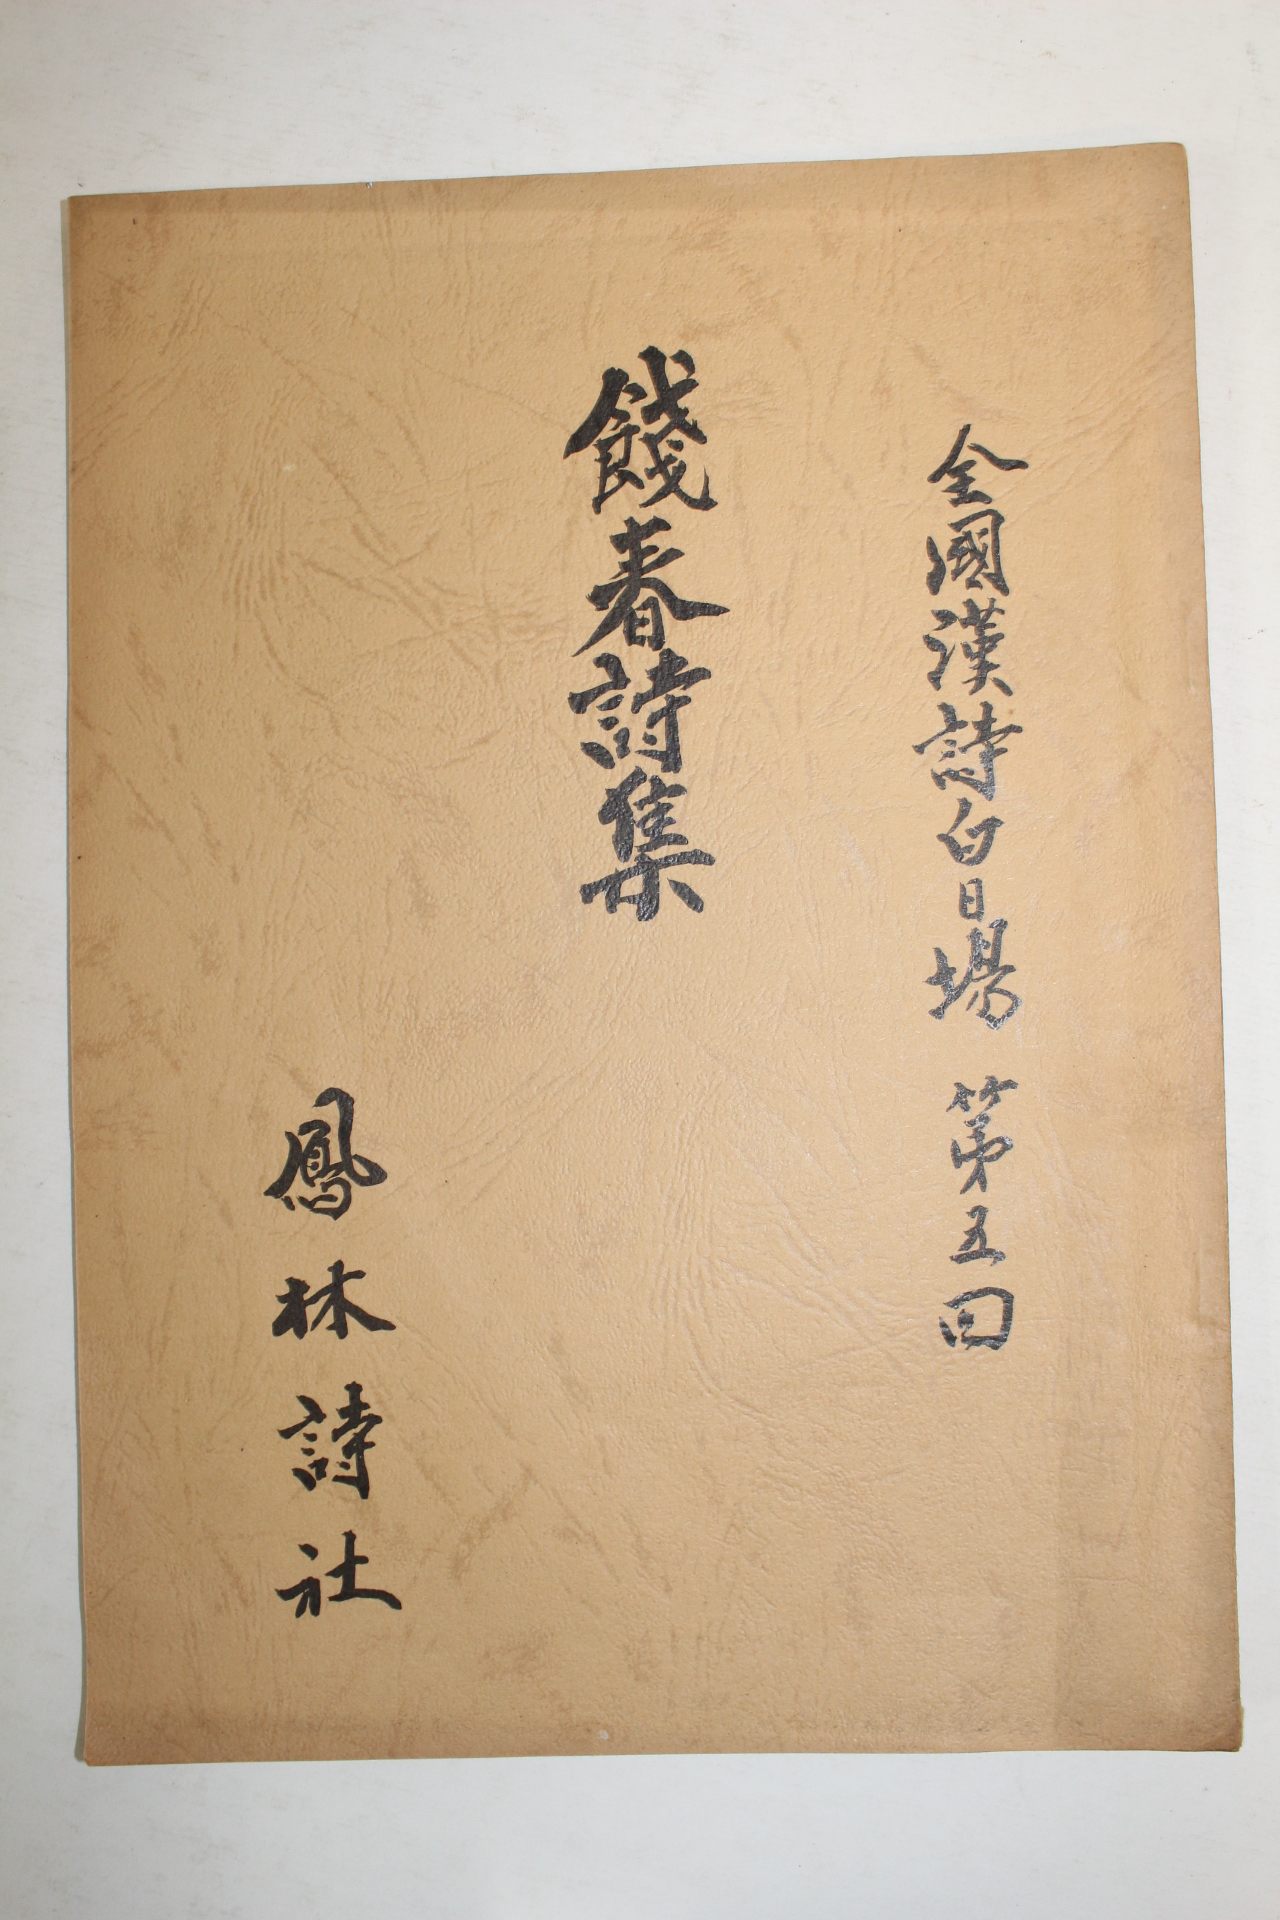 全國漢詩白日場 第五回
餞春詩集
鳳林詩社